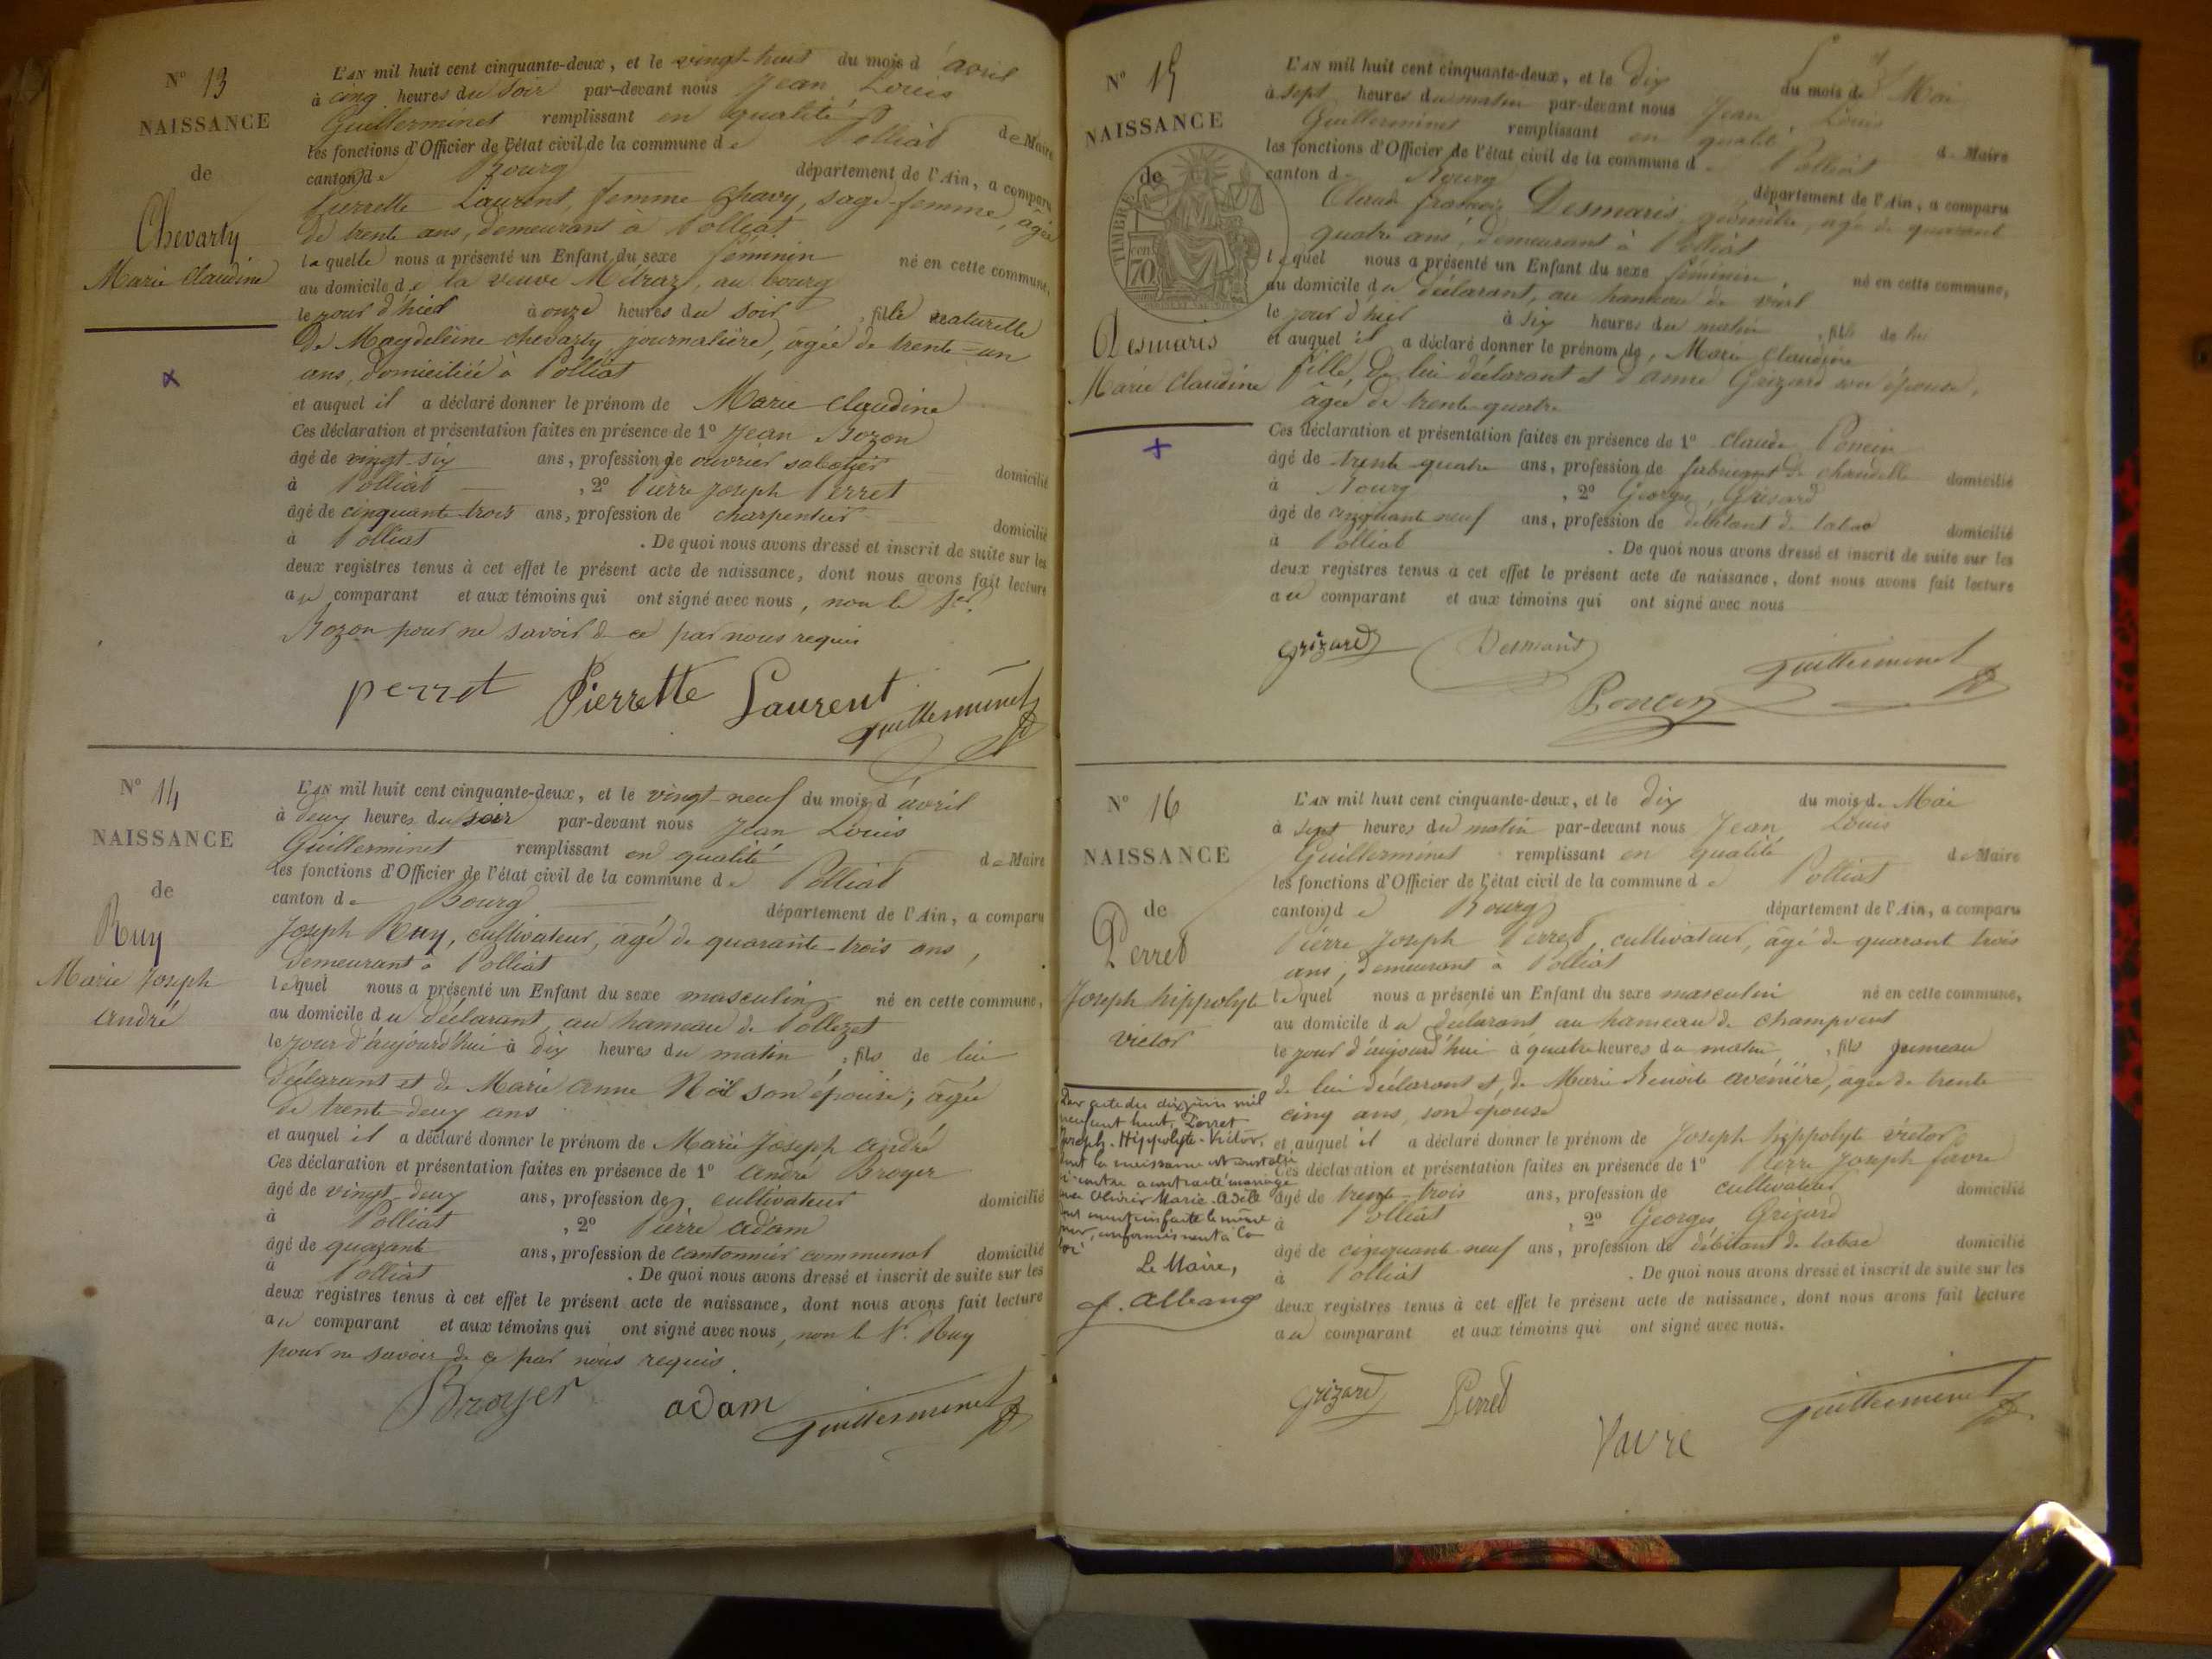 N° 13
NAISSANCE
de
Chevarty
Marie Claudine
L'AN mil huit cent cinquante-deux, et le vingt-huit du mois d'avril
à cinq heures du soir par-devant nous Jean Louis
Guillerminet remplissant en qualité de Maire
les fonctions d'Officier de l'état civil de la commune de Polliat
canton de Bourg département de l'Ain, a comparu
Pierrette Laurent, femme Chavy, sage-femme, âgée
de trente ans, demeurant à Polliat
laquelle nous a présenté un Enfant du sexe féminin né en cette commune,
au domicile de la veuve Métraz, au bourg
le jour d'hier à onze heures du soir, fille naturelle
de Magdeleine chevarty, journalière, âgée de trente-un
ans, domiciliée à Polliat
et auquel il a déclaré donner le prénom de Marie Claudine
Ces déclaration et présentation faites en présence de 1° Jean Bozon
âgé de vingt-six ans, profession de ouvrier sabotier domicilié
à Polliat, 2° Pierre Joseph Perret
âgé de cinquante-trois ans, profession de charpentier domicilié
à Polliat. De quoi nous avons dressé et inscrit de suite sur les
deux registres tenus à cet effet le présent acte de naissance, dont nous avons fait lecture
au comparant et aux témoins qui ont signé avec nous, non le
Bozon pour ne savoir de ce par nous requis
perret Pierrette Laurent Guillerminet
N° 14
NAISSANCE
de
Ruy
Marie Joseph
André
L'AN mil huit cent cinquante-deux, et le vingt-neuf du mois d'avril
à deux heures du soir par-devant nous Jean Louis
Guillerminet remplissant en qualité de Maire
les fonctions d'Officier de l'état civil de la commune de Polliat
canton de Bourg département de l'Ain, a comparu
Joseph Ruy, cultivateur, âgé de quarante-trois ans,
demeurant à Polliat
lequel nous a présenté un Enfant du sexe masculin né en cette commune,
au domicile du déclarant, au hameau de Pollezet
le jour d'aujourd'hui à dix heures du matin, fils de lui
déclarant et de Marie Anne Noël son épouse, âgée
de trente-deux ans
et auquel il a déclaré donner le prénom de Marie Joseph André
Ces déclaration et présentation faites en présence de 1° André Broyer
âgé de vingt-deux ans, profession de cultivateur domicilié
à Polliat, 2° Pierre Adam
âgé de quarante ans, profession de cantonnier communal domicilié
à Polliat. De quoi nous avons dressé et inscrit de suite sur les
deux registres tenus à cet effet le présent acte de naissance, dont nous avons fait lecture
au comparant et aux témoins qui ont signé avec nous, non le Ruy
pour ne savoir de ce par nous requis.
Broyer adam Guillerminet
N° 15
NAISSANCE
de
TIMBRE
70
Desmaris
Marie Claudine
L'AN mil huit cent cinquante-deux, et le dix du mois de Mai
à sept heures du matin par-devant nous Jean Louis
Guillerminet remplissant en qualité de Maire
les fonctions d'Officier de l'état civil de la commune de Polliat
canton de Bourg département de l'Ain, a comparu
Claude françois Desmaris, âgé de quarante
quatre ans, demeurant à Polliat
lequel nous a présenté un Enfant du sexe féminin, né en cette commune,
au domicile du déclarant, au hameau de
le jour d'hier à six heures du matin, fils de lui
et auquel il a déclaré donner le prénom de, Marie Claudine
fille de lui déclarant et d'anne Grizard son épouse,
âgée de trente-quatre
Ces déclaration et présentation faites en présence de 1° Claude Poncin
âgé de trente-quatre ans, profession de fabriquant de chandelle domicilié
à Bourg, 2° Georges Grizard
âgé de cinquante neuf ans, profession de débitant de tabac domicilié
à Polliat. De quoi nous avons dressé et inscrit de suite sur les
deux registres tenus à cet effet le présent acte de naissance, dont nous avons fait lecture
au comparant et aux témoins qui ont signé avec nous
Grizard Desmaris Guillerminet
Poncin
N° 16
NAISSANCE
de
Perret
Joseph hippolyte
victor
Par acte du dix juin mil
neuf cent huit, Perret
Joseph-Hippolyte-Victor,
dont la naissance est constatée
ci-contre a contracté mariage
avec Olivier Marie-Adèle
dont mention faite le même
jour, conformément à la
loi
Le Maire,
L'AN mil huit cent cinquante-deux, et le dix du mois de Mai
à sept heures du matin par-devant nous Jean Louis
Guillerminet remplissant en qualité de Maire
les fonctions d'Officier de l'état civil de la commune de Polliat
canton de Bourg département de l'Ain, a comparu
Pierre Joseph Perret, cultivateur, âgé de quarante trois
ans, demeurant à Polliat
lequel nous a présenté un Enfant du sexe masculin né en cette commune,
au domicile du déclarant au hameau de champvent
le jour d'aujourd'hui à quatre heures du matin, fils jumeau
de lui déclarant et de Marie Benoite avenière, âgée de trente
cinq ans, son épouse
et auquel il a déclaré donner le prénom de Joseph hippolyte victor
Ces déclaration et présentation faites en présence de 1° Pierre Joseph favre
âgé de trente-trois ans, profession de cultivateur domicilié
à Polliat, 2° Georges Grizard
âgé de cinquante-neuf ans, profession de débitant de tabac domicilié
à Polliat. De quoi nous avons dressé et inscrit de suite sur les
deux registres tenus à cet effet le présent acte de naissance, dont nous avons fait lecture
au comparant et aux témoins qui ont signé avec nous.
Grizard Perret Guillerminet
favre